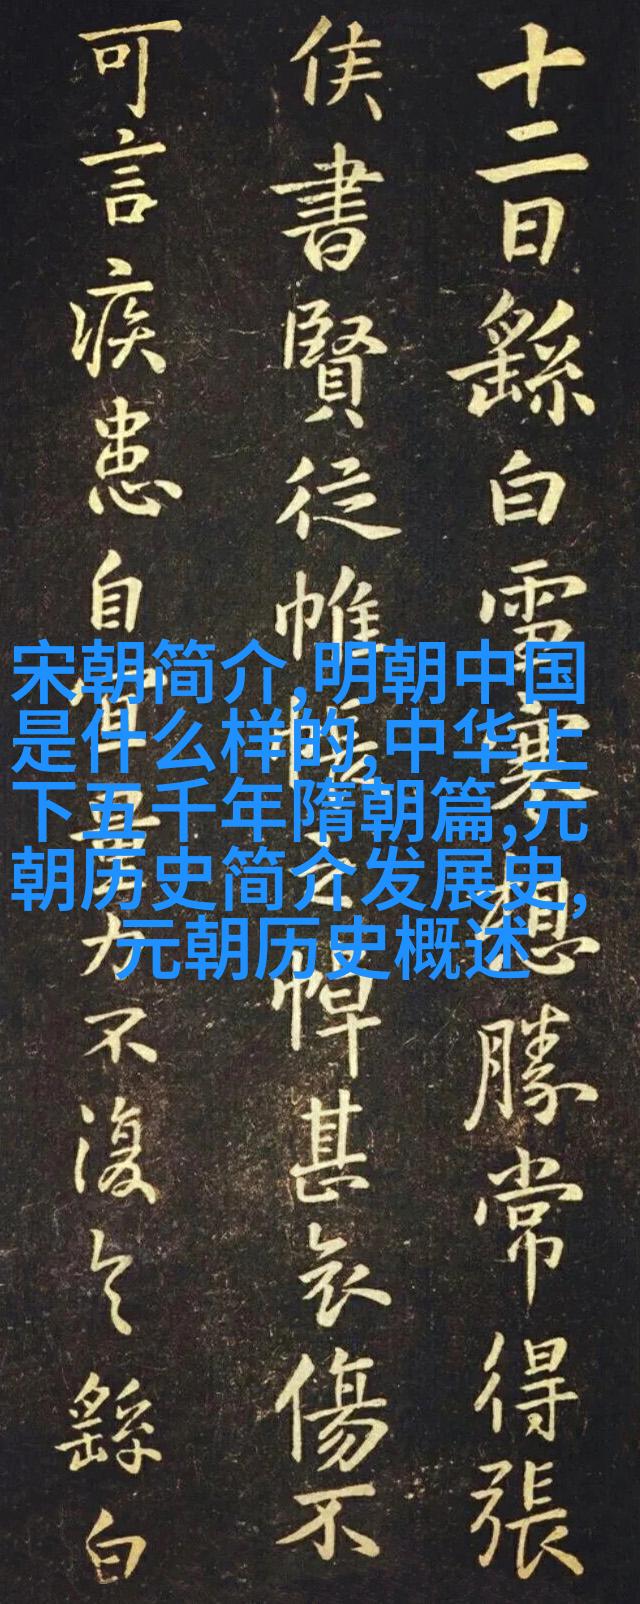 十二日繇白雪寒想勝常得張
侯書賢從帷之悼甚哀傷不
可言疾患自宜量力不復繇白
宋朝简介,明朝中国
是什么样的,中华上
下五千年隋朝篇,元
朝历史简介发展史,
元朝历史概述